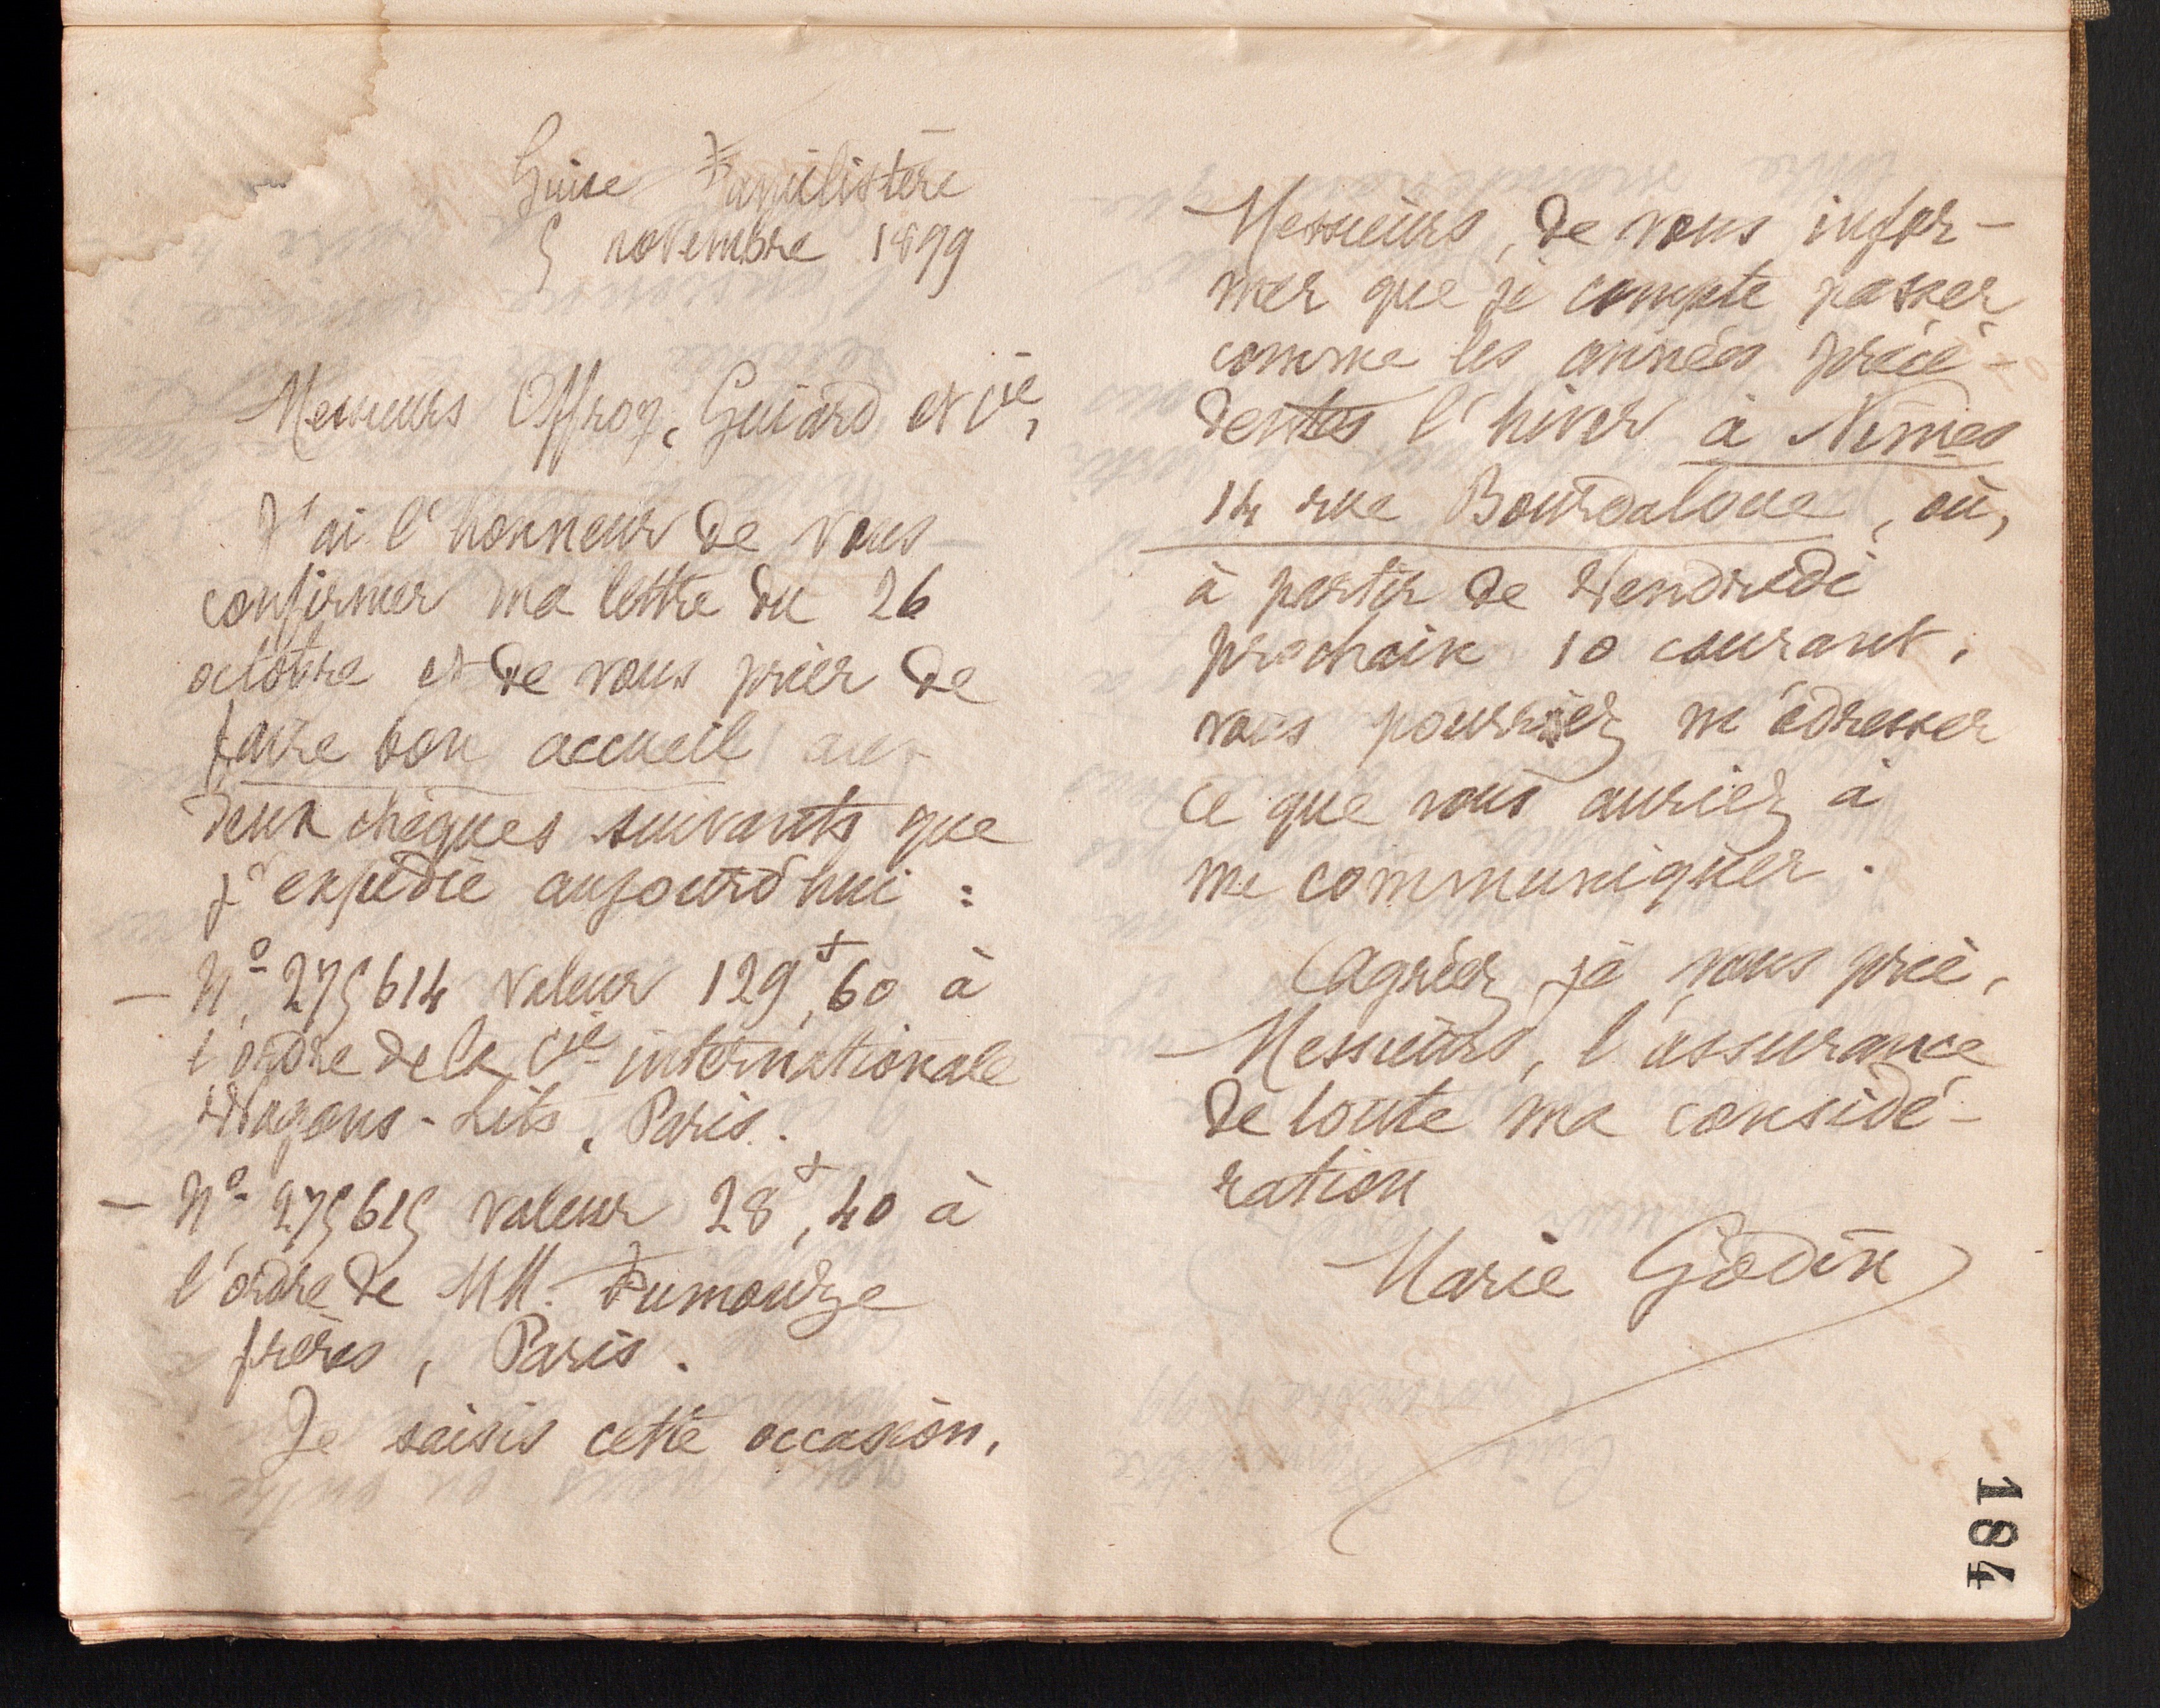 Guise Familistère
5 novembre 1899
Messieurs Offroy, Guiard et Cie,
J'ai l'honneur de vous
confirmer ma lettre du 26
octobre et de vous prier de
faire bon accueil aux
deux chèques suivants que
j'expédie aujourd'hui :
— N° 275614 valeur 129f,60 à
l'ordre de la Cie internationale
Wagons-Lits, Paris.
— N° 275615 valeur 28f,40 à
l'ordre de MM. Fumouze
frères, Paris.
Je saisis cette occasion,
Messieurs, de vous infor-
mer que je compte passer
comme les années précé-
dentes l'hiver à Nîmes
14 rue Bourdaloue, où,
à partir de Vendredi
prochain 10 courant,
vous pourriez m'adresser
ce que vous auriez à
me communiquer.
Agréez, je vous prie,
Messieurs, l'assurance
de toute ma considé-
ration
Marie Godin
184